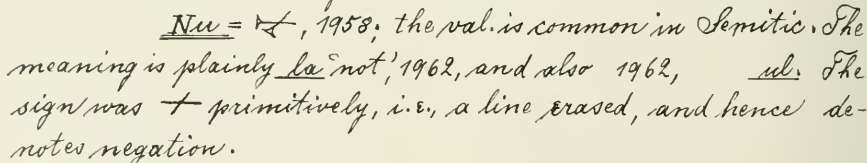 Nu = 𒉡, 1958; the val. is common in Semitic. The
meaning is plainly la "not", 1962, and also 1962, ul. The
sign was 𐏑 primitively, i.e., a line erased, and hence de-
notes negation.